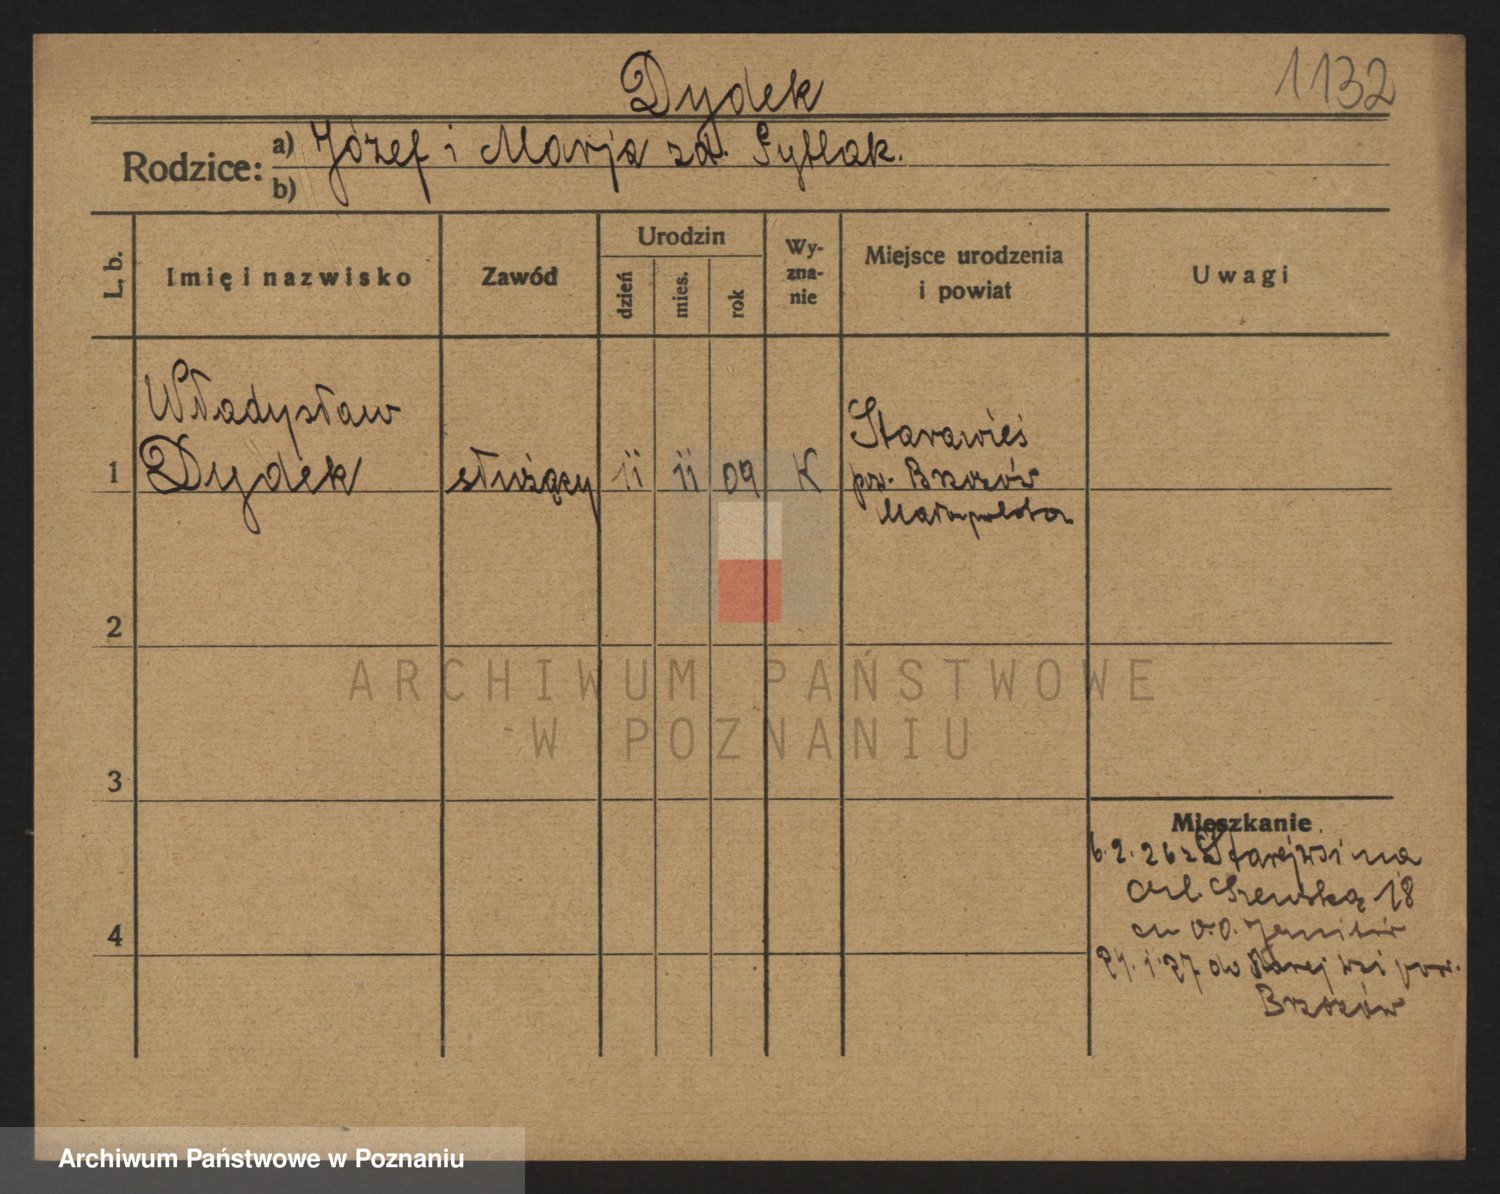 Dydek
1132
Rodzice: a) Józef i Marja zd. Sytlak.
b)
L. b.
Imię i nazwisko
Zawód
Urodzin
dzień
mies.
rok
Wy-
zna-
nie
Miejsce urodzenia
i powiat
Uwagi
Władysław
1 Dydek służący 11 11 09 K
Starawieś
pow. Brzozów
Małopolska
2
ARCHIWUM PAŃSTWOWE
W POZNANIU
3
Mieszkanie
6.2.26 z Starejwsi na
ul. Szewską 18
21.1.27 do Starejwsi pow.
Brzozów
4
Archiwum Państwowe w Poznaniu